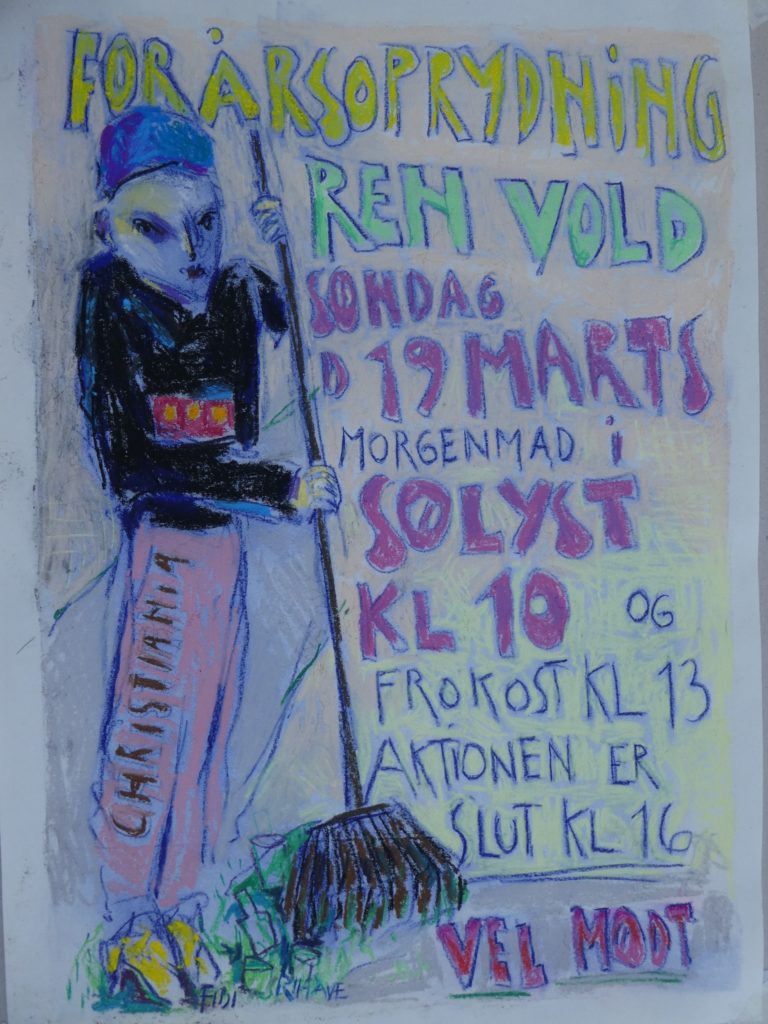 FORÅRSOPRYDNING
REN VOLD
SØNDAG
D 19 MARTS
MORGENMAD i
SOLYST
KL 10 OG
FROKOST KL 13
AKTIONEN ER
SLUT KL 16
VEL MØDT
CHRISTIANIA
FIBI